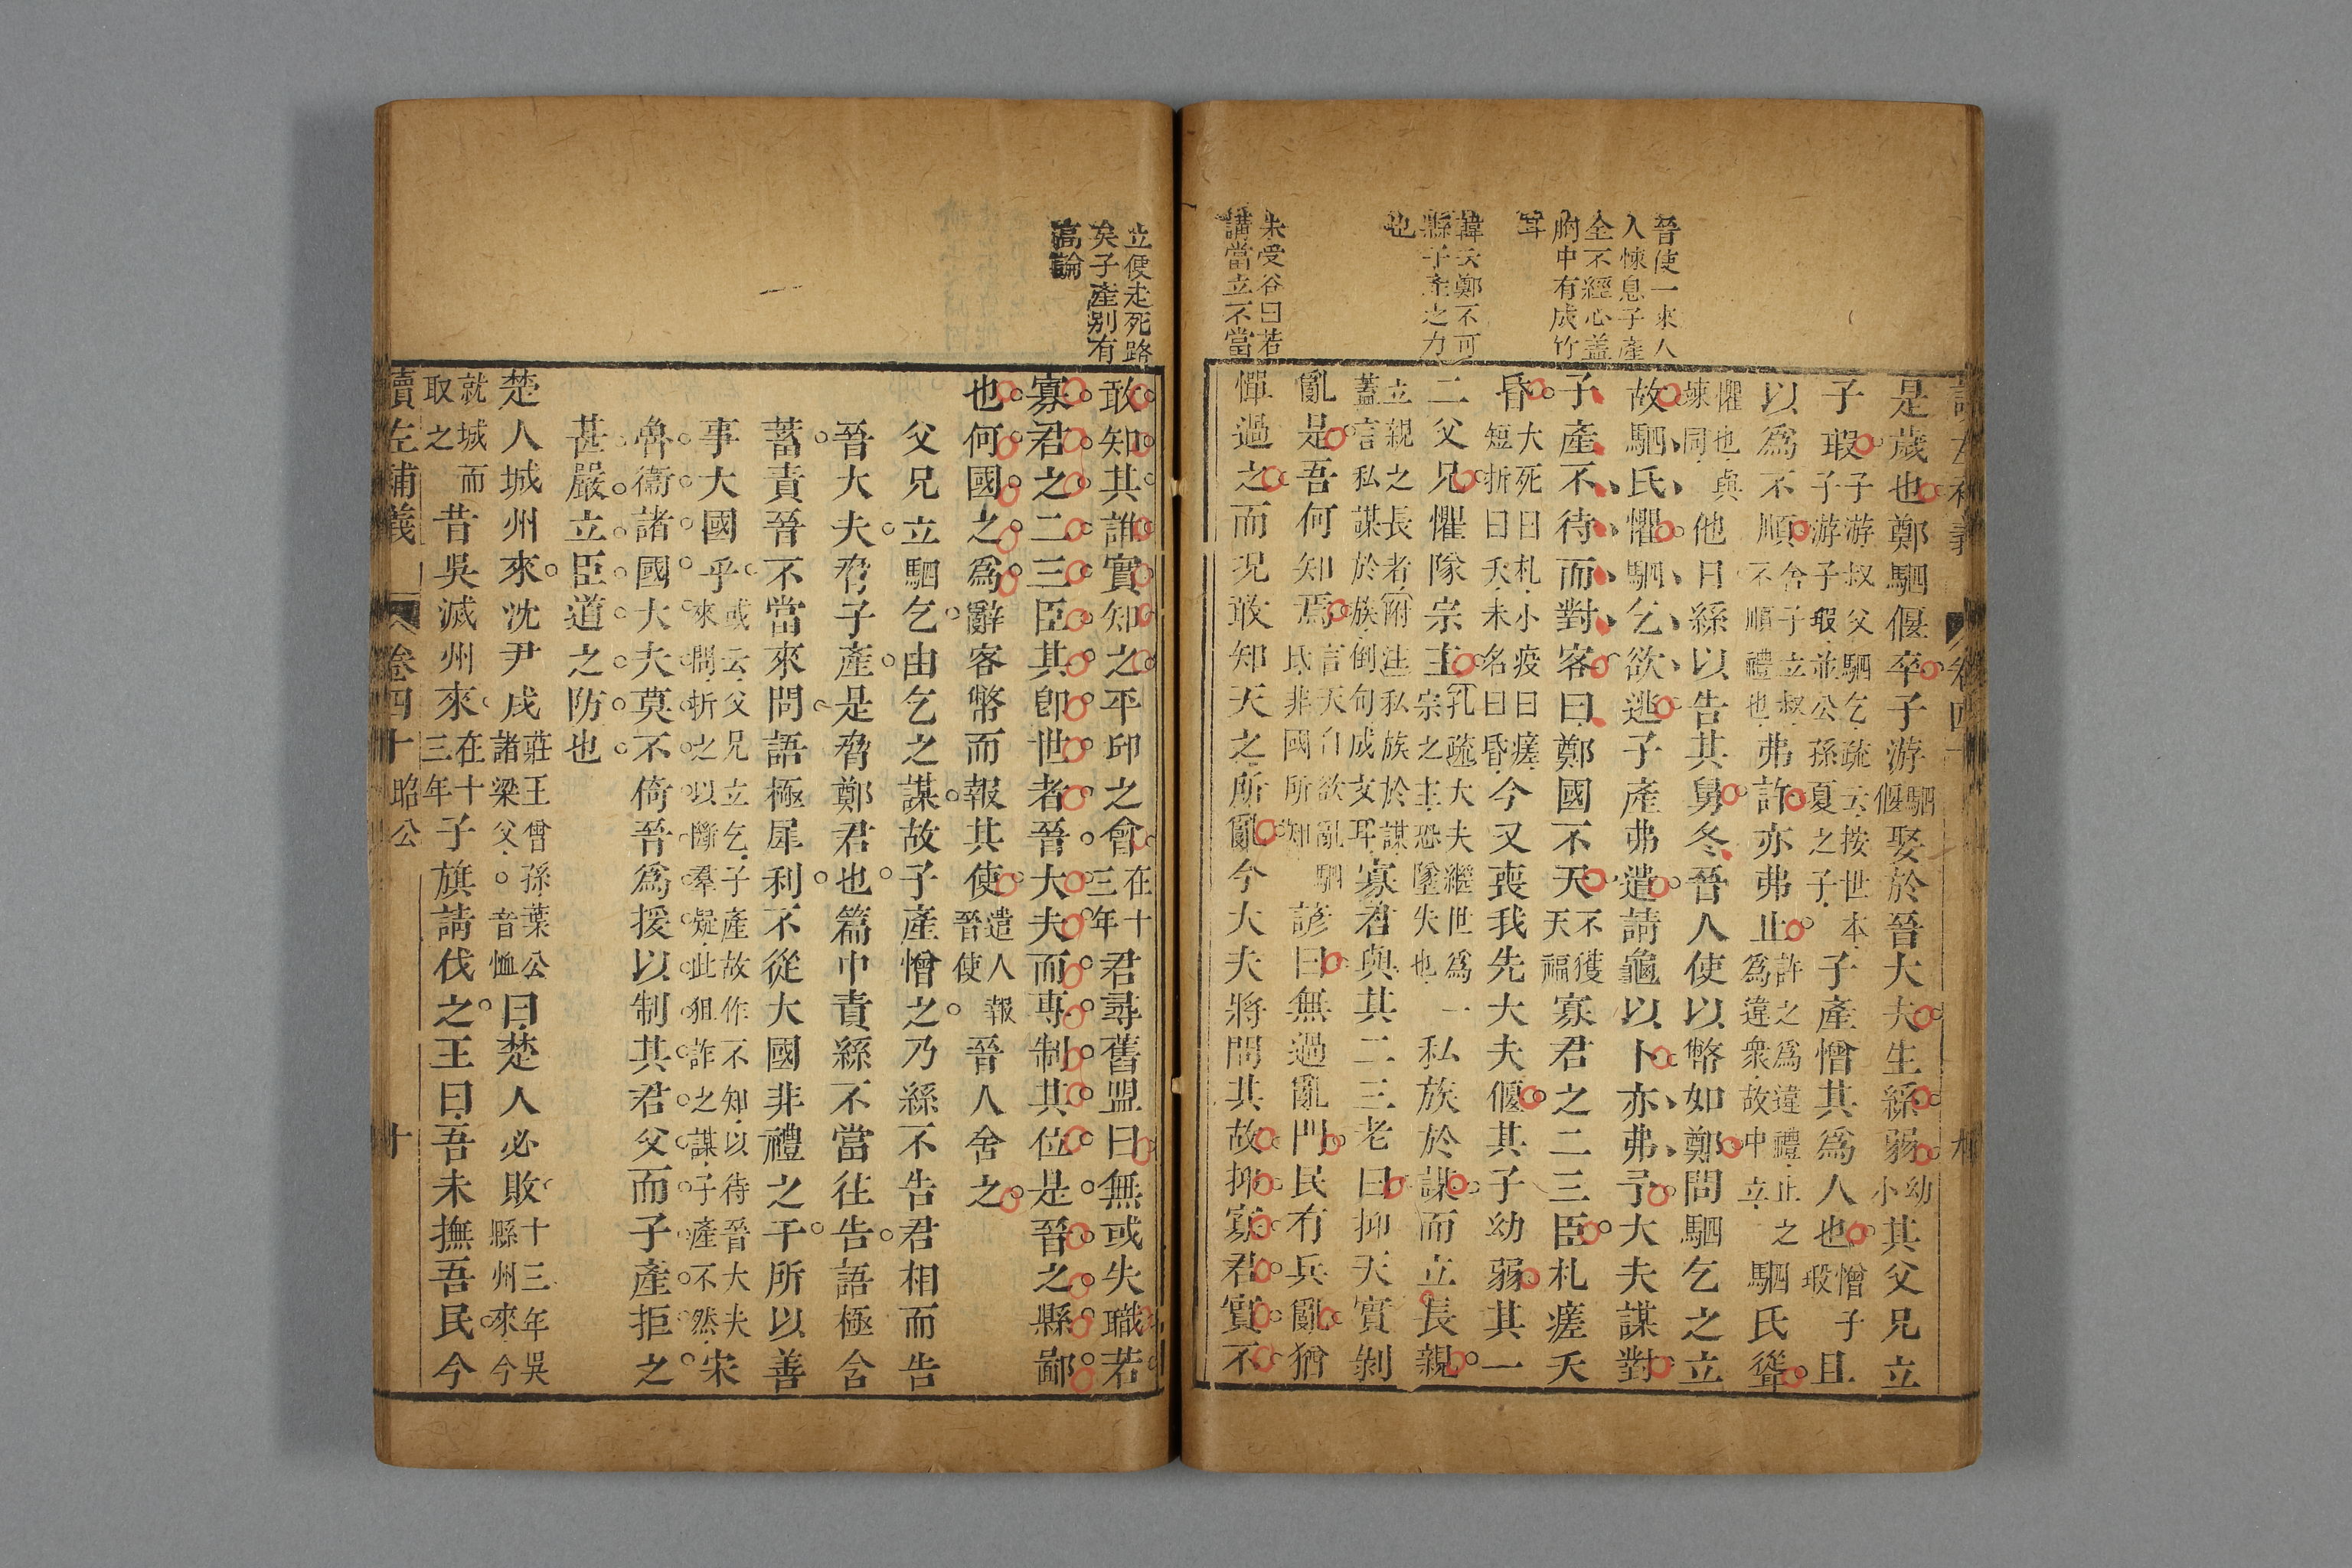 晉使一來人
人悚息子產
全不經心蓋
胸中有成竹
耳
韓宣鄭不可
縣子產之力
也
朱受谷曰若
講當立不當
是歲也鄭駟偃卒子游駟偃娶於晉大夫生絲弱幼小其父兄立
子瑕子游叔父駟乞疏云按世本子游子瑕並公孫夏之子子產憎其爲人也憎子瑕且
以爲不順舍子立叔不順禮也弗許亦弗止許之爲違禮止之爲違衆故中立駟氏聳
懼也與悚同他日絲以告其舅冬晉人使以幣如鄭問駟乞之立
故駟氏懼駟乞欲逃子產弗遣請龜以卜亦弗予大夫謀對
子產不待而對客曰鄭國不天不獲天福寡君之二三臣札瘥夭
昏大死曰札小疫曰瘥短折曰夭未名曰昏今又喪我先大夫偃其子幼弱其一
二父兄懼隊宗主孔疏大夫繼世爲一宗之主恐墜失也私族於謀而立長親
立親之長者附注私族於謀蓋言私謀於族倒句成文耳寡君與其二三老曰抑天實剝
亂是吾何知焉言天自欲亂駟氏非國所知諺曰無過亂門民有兵亂猶
憚過之而況敢知天之所亂今大夫將問其故抑寡君實不
立便走死路
矣子產别有
高論
敢知其誰實知之平邱之會在十三年君尋舊盟曰無或失職若
寡君之二三臣其卽世者晉大夫而專制其位是晉之縣鄙
也何國之爲辭客幣而報其使遣人報晉使晉人舍之
父兄立駟乞由乞之謀故子產憎之乃絲不告君相而告
晉大夫脅子產是脅鄭君也篇中責絲不當往告語極含
蓄責晉不當來問語極犀利不從大國非禮之干所以善
事大國乎或云父兄立乞子產故作不知以待晉大夫來問折之以斷羣疑此狙詐之謀子產不然宋
魯衞諸國大夫莫不倚晉爲援以制其君父而子產拒之
甚嚴立臣道之防也
楚人城州來沈尹戌莊王曾孫葉公諸梁父音恤曰楚人必敗十三年吳縣州來今
就城而取之昔吳滅州來在十三年子旗請伐之王曰吾未撫吾民今
讀左補義
卷四十
昭公
十